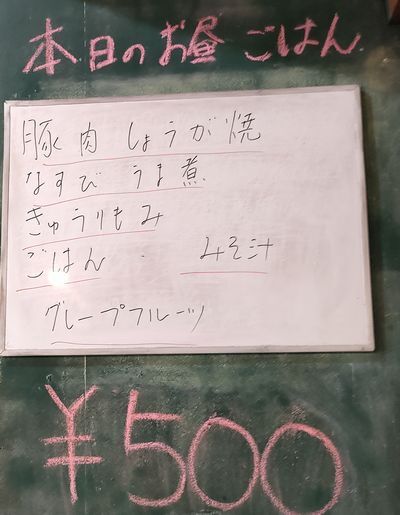 本日のお昼ごはん
豚肉しょうが焼
なすび うま煮
きゅうりもみ
ごはん みそ汁
グレープフルーツ
¥500